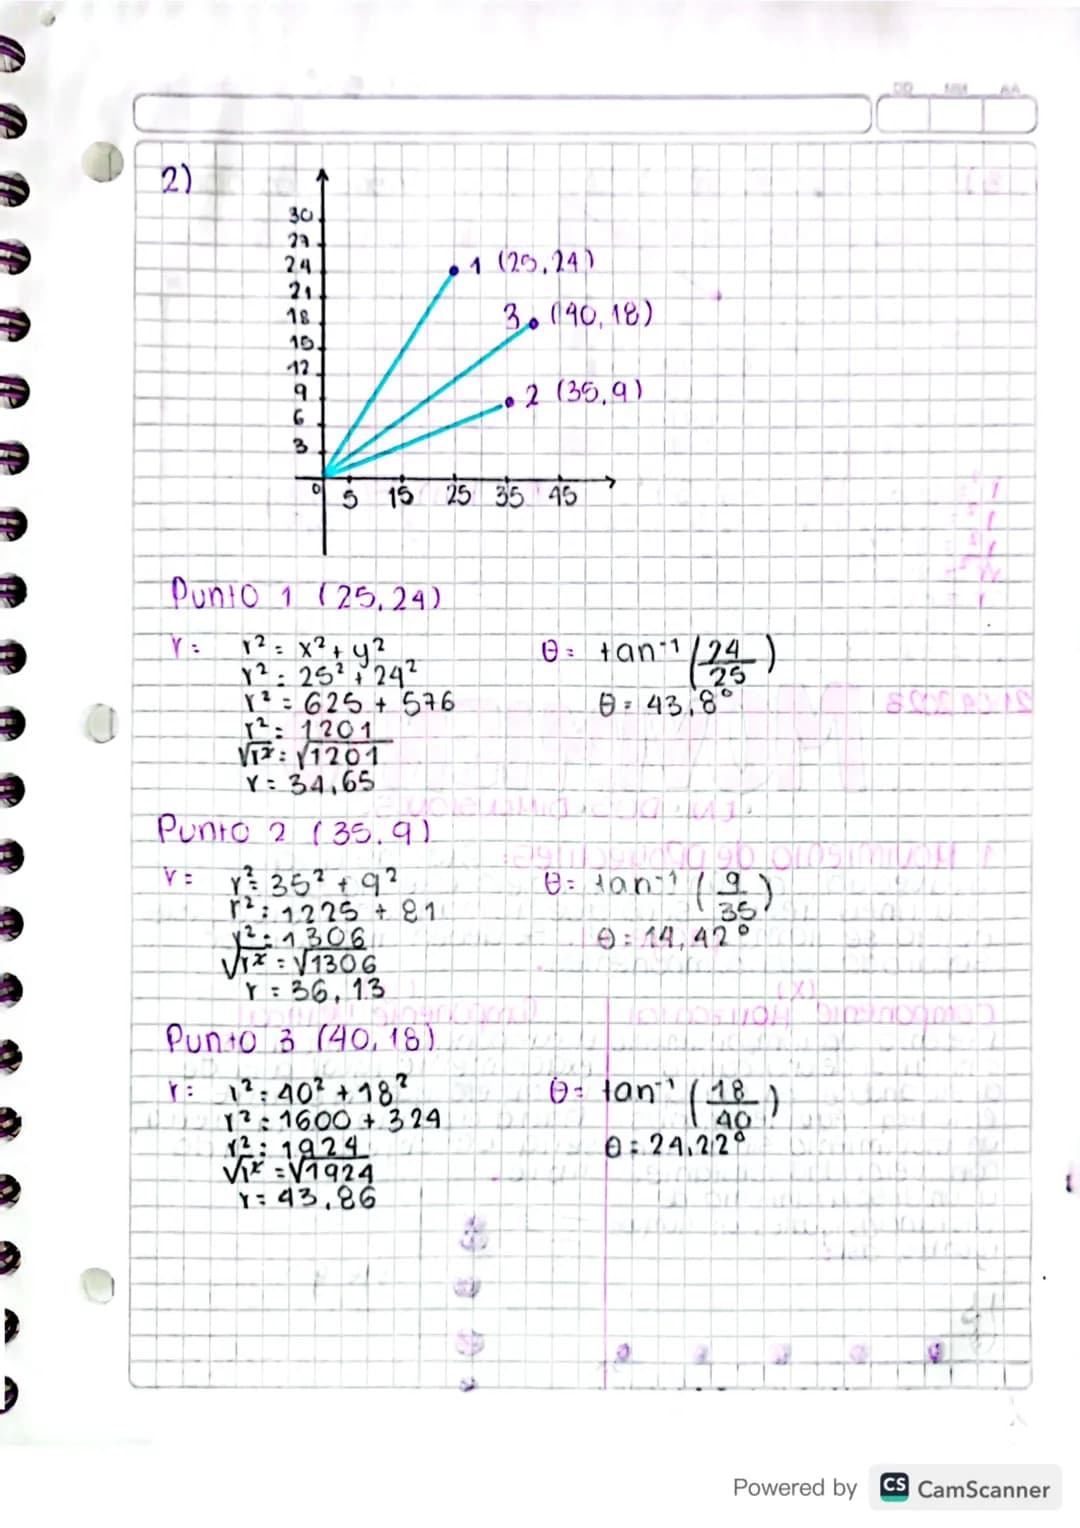 DD MM AA
2)
30
27
24
21
18
15
12
9
6
3
1 (25,24)
3 (40,18)
2 (35,9)
0 5 15 25 35 45
Punto 1 (25,24)
r= r² = x² + y²
r² = 25² + 24²
r² = 625 + 576
r² = 1201
√r² = √1201
r = 34,65
θ = tan⁻¹ (24/25)
θ = 43,8°
Punto 2 (35,9)
r= r² = 35² + 9²
r² = 1225 + 81
r² = 1306
√r² = √1306
r = 36,13
θ = tan⁻¹ (9/35)
θ = 14,42°
Punto 3 (40,18)
r: r² = 40² + 18²
r² = 1600 + 324
r² = 1924
√r² = √1924
r = 43,86
θ = tan⁻¹ (18/40)
θ = 24,22°
Powered by CS CamScanner